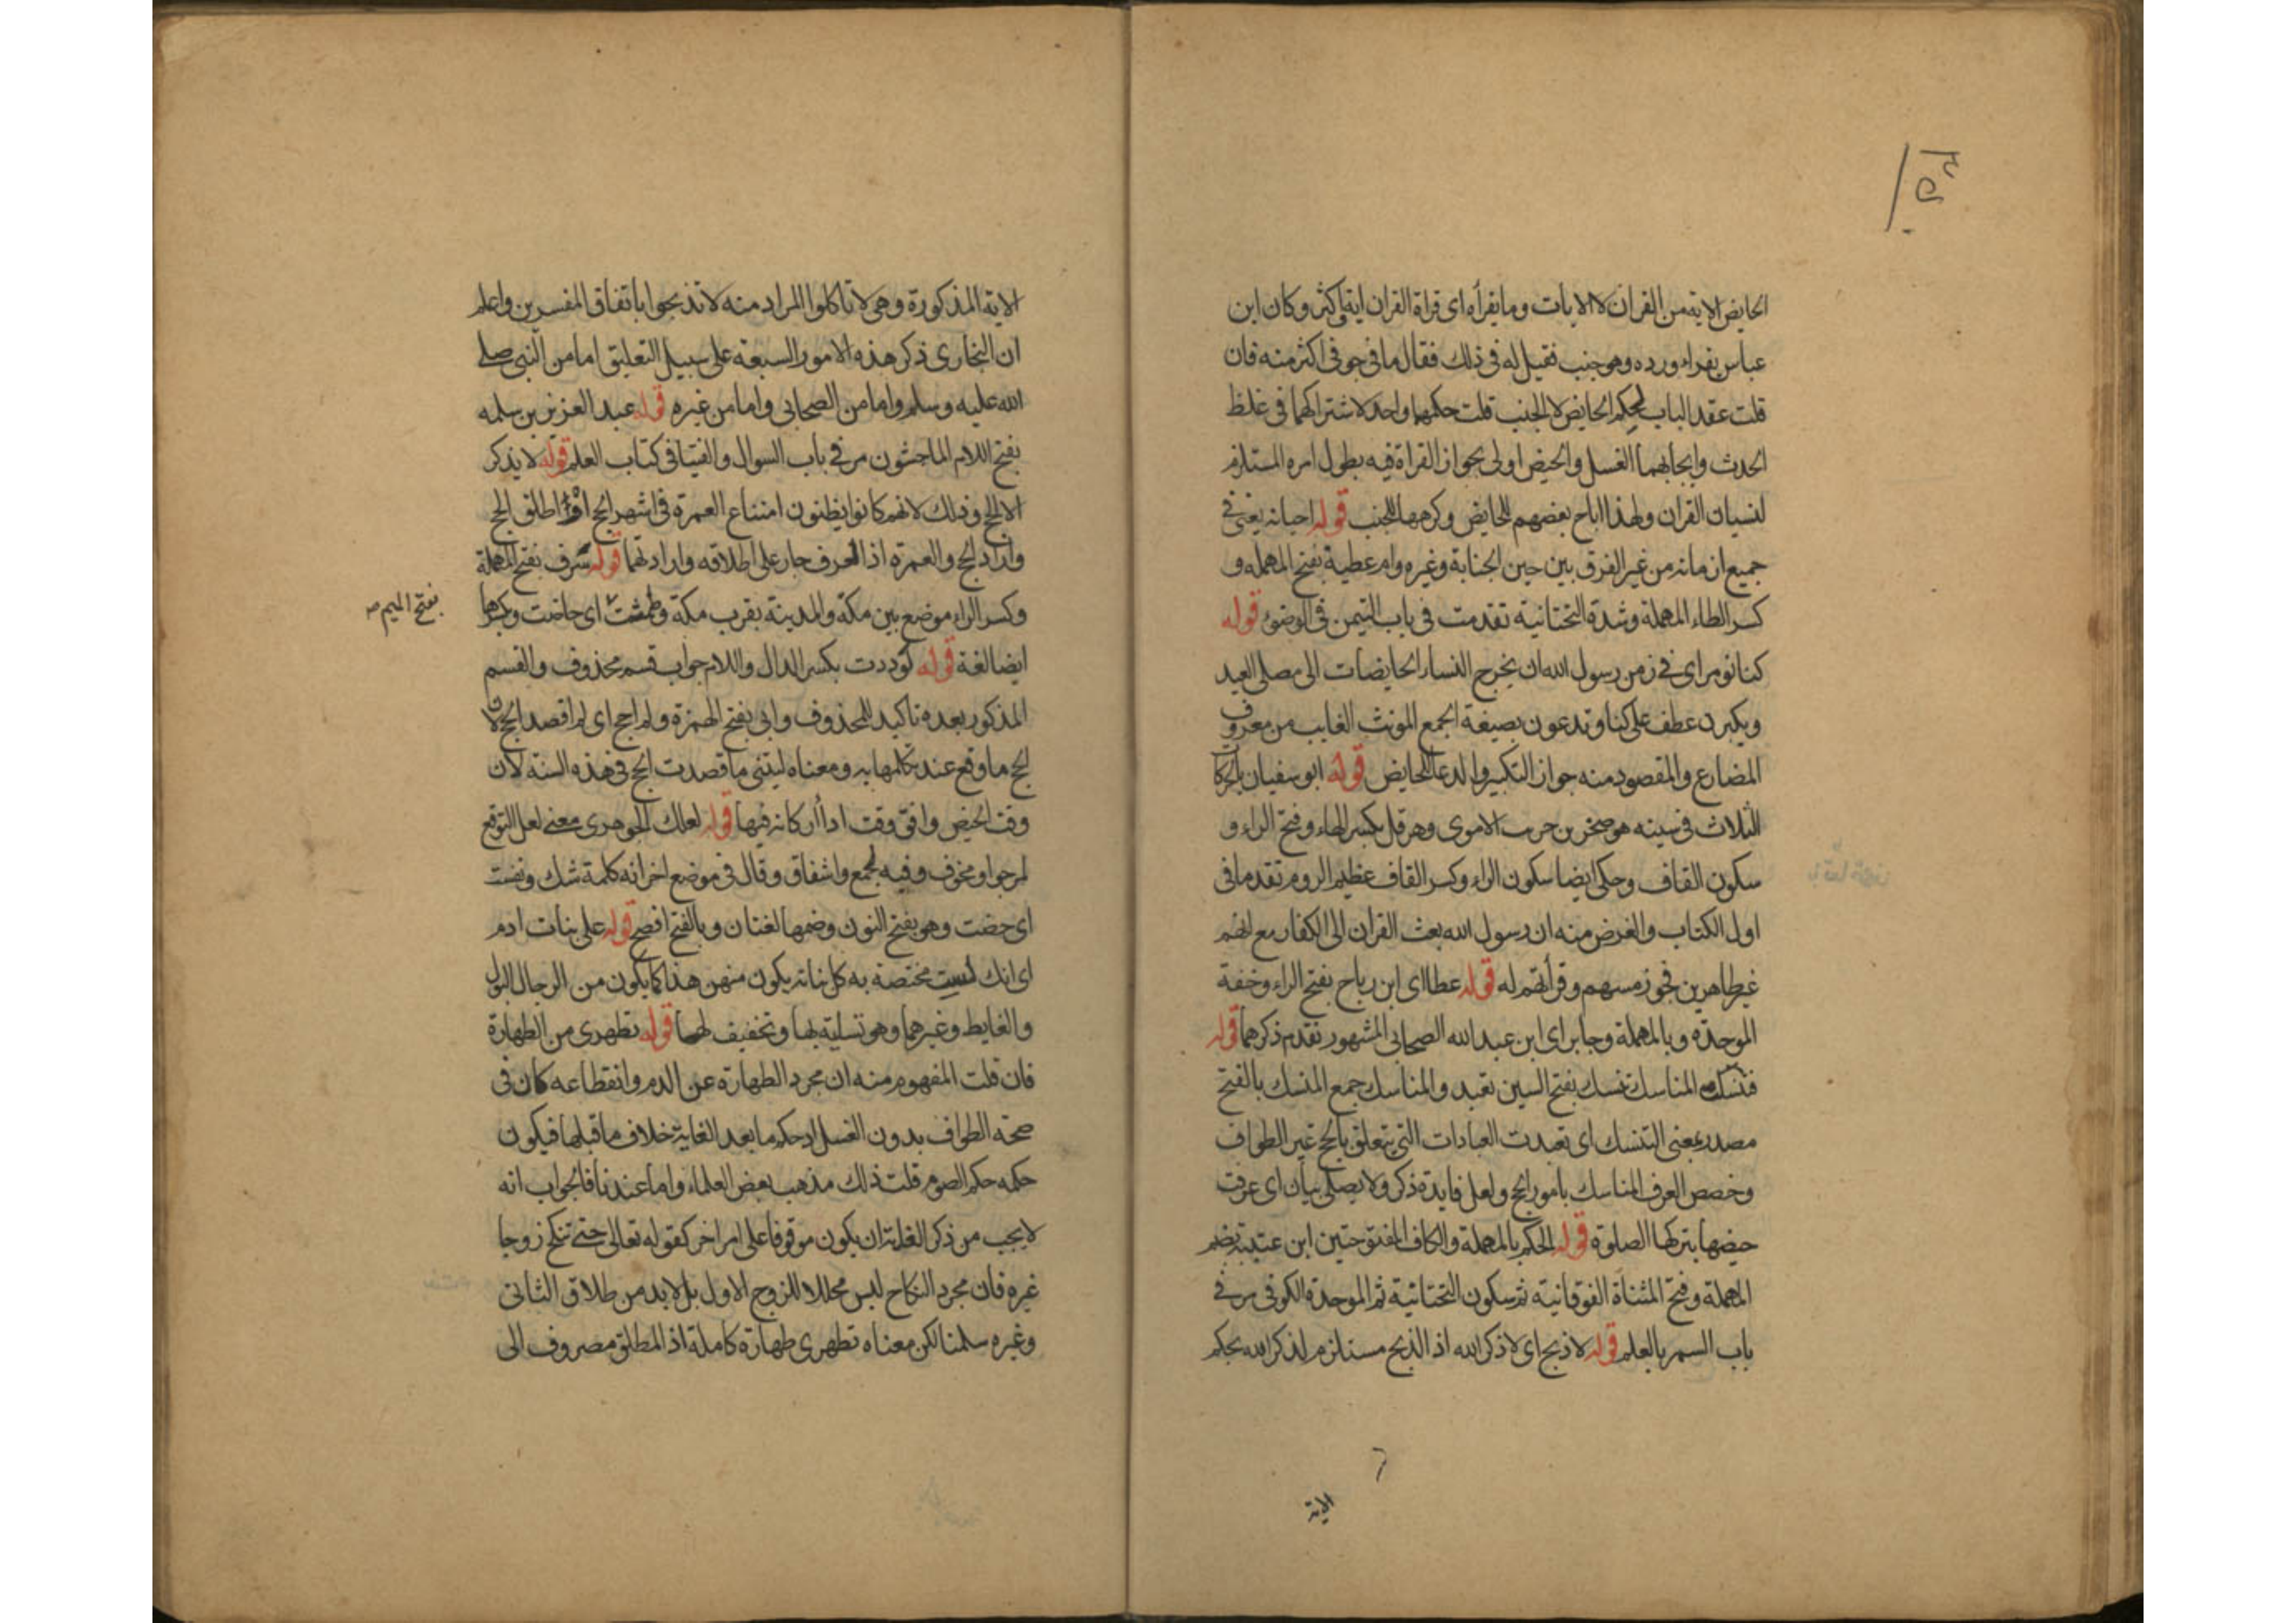 الحايض الاية من القران لا الايات وما يقرأه اى قراة القران اية او اكثر وكان ابن
عباس يقراء ورده وهو جنب فقيل له فى ذلك فقال ما فى جوفى اكثر منه فان
قلت عقد الباب لحكم الحايض لا الجنب قلت حكمهما واحد لاشتراكهما فى غلظ
الحدث وايجابهما الغسل والحيض اولى بجواز القراة فيه بطول امره المستلزم
لنسيان القران ولهذا اباح بعضهم للحايض وكرهها للجنب قوله احيانه يعنى فى
جميع ازمانه من غير الفرق بين حين الجنابة وغيره وام عطية بفتح المهمله و
كسر الطاء المهملة وشدة التحتانية تقدمت فى باب التيمن فى الوضوء قوله
كنا نومر اى فى زمن رسول الله ان يخرج النساء الحايضات الى مصلى العيد
ويكبرن عطف على كنا وتدعون بصيغة الجمع المونث الغايب من معروف
المضارع والمقصود منه جواز التكبير والدعا للحايض قوله ابو سفيان بالحركات
الثلاث فى سينه هو صخر بن حرب الاموى وهرقل بكسر الهاء وفتح الراء و
سكون القاف وحكى ايضا سكون الراء وكسر القاف عظيم الروم تقدما فى
اول الكتاب والغرض منه ان رسول الله بعث القران الى الكفار مع انهم
غير طاهرين فجوز مسهم وقرأتهم له قوله عطا اى ابن رباح بفتح الراء وخفة
الموحدة وبالمهملة وجابر اى ابن عبد الله الصحابى المشهور تقدم ذكرهما قوله
فنسكت المناسك تنسك بفتح السين تعبد والمناسك جمع المنسك بالفتح
مصدر بمعنى التنسك اى تعبدت العبادات التى يتعلق بالحج غير الطواف
وخصص العرف المناسك بامور الحج ولعل فايدة ذكر ولا يصلى بيان اى عرفت
حيضها بتركها الصلوة قوله الحكم بالمهملة والكاف المفتوحتين ابن عتيبة بضم
المهملة وفتح المثناة الفوقانية ثم سكون التحتانية ثم الموحدة الكوفى مر فى
باب السمر بالعلم قوله لاذبح اى لاذكر الله اذ الذبح مستلزم لذكر الله بحكم
الاية
الاية المذكورة وهى لا تاكلوا المراد منه لا تذبحوا باتفاق المفسرين واعلم
ان البخارى ذكر هذه الامور السبعة على سبيل التعليق اما من النبى صلى
الله عليه وسلم واما من الصحابى واما من غيره قوله عبد العزيز بن سلمه
بفتح اللام الماجشون مر فى باب السوال والفتيا فى كتاب العلم قوله لا يذكر
الا الحج وذلك لانهم كانوا يظنون امتناع العمرة فى اشهر الحج او اطلق الحج
واراد الحج والعمرة اذ العرف جار على اطلاقه وارادتهما قوله سرف بفتح المهملة
وكسر الراء موضع بين مكة والمدينة بقرب مكة وطمثت اى حاضت وبكسرها
بفتح الميم صح
ايضا لغة قوله لوددت بكسر الدال واللام جواب قسم محذوف والقسم
المذكور بعده تاكيد للمحذوف وانى بفتح الهمزة ولم احج اى لم اقصد الحج لان
الحج ما وقع عند تكلمها به ومعناه ليتنى ما قصدت الحج فى هذه السنة لان
وقت الحيض وافق وقت اداأركانه فيها قوله لعلك الجوهرى معنى لعل التوقع
لمرجو او مخوف وفيه طمع واشفاق وقال فى موضع اخر انه كلمة شك ونفست
اى حضت وهو بفتح النون وضمها لغتان وبالفتح افصح قوله على بنات ادم
اى انك لست مختصة به كل بناته يكون منهن هذا كما يكون من الرجال البول
والغايط وغيرهما وهو تسلية لها وتخفيف لهما قوله تطهرى من الطهارة
فان قلت المفهوم منه ان مجرد الطهارة عن الدم وانقطاعه كان فى
صحة الطواف بدون الغسل اذ حكم ما بعد الغاية خلاف ما قبلها فيكون
حكمه حكم الصوم قلت ذلك مذهب بعض العلماء واما عندنا فالجواب انه
لا يجب من ذكر الغاية ان يكون موقوفا على امر اخر كقوله تعالى حتى تنكح زوجا
غيره فان مجرد النكاح ليس محللا للزوج الاول بل لا بد من طلاق الثانى
وغيره سلمنا لكن معناه تطهرى طهارة كاملة اذ المطلق مصروف الى